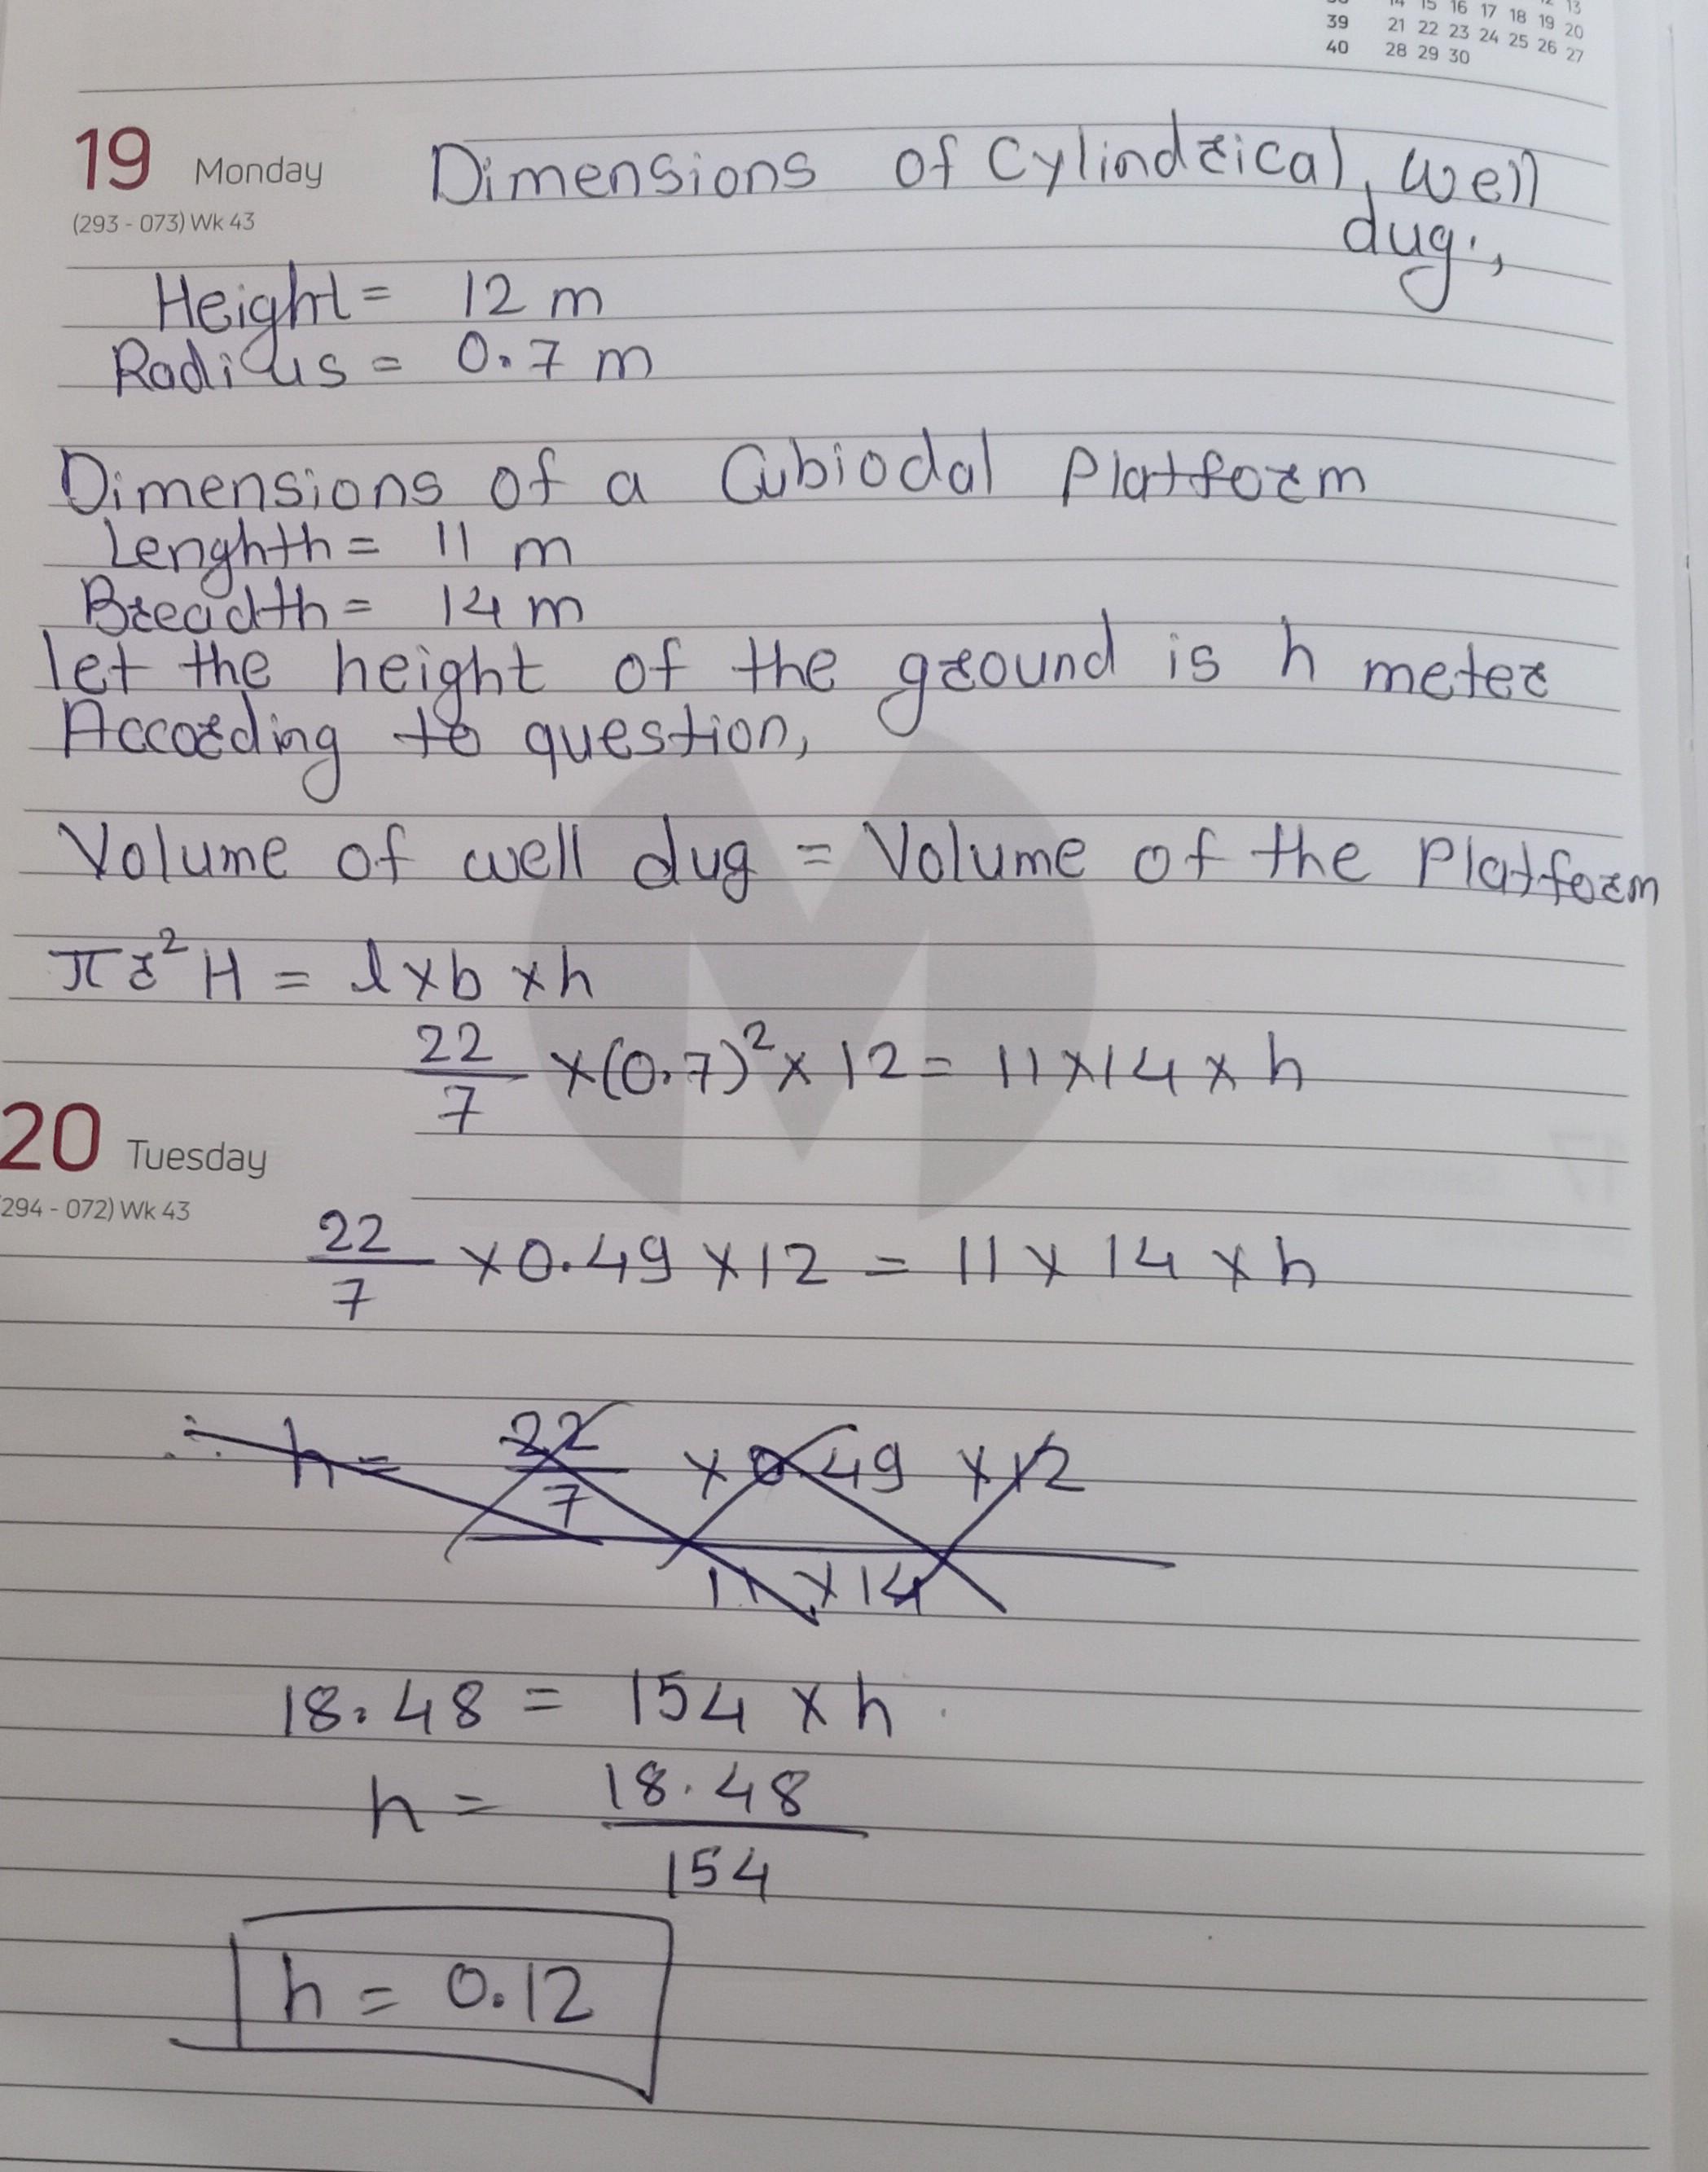 14 15 16 17 18 19 20
39 21 22 23 24 25 26 27
40 28 29 30
19 Monday
(293 - 073) Wk 43
Dimensions of Cylindrical, well
dug.,
Height = 12 m
Radius = 0.7 m
Dimensions of a Cubiodal Platform
Lenghth = 11 m
Breadth = 14 m
let the height of the ground is h meter
According to question,
Volume of well dug = Volume of the Platform
πr²H = l×b×h
22/7 ×(0.7)²× 12 = 11×14 × h
20 Tuesday
294 - 072) Wk 43
22/7 ×0.49 ×12 = 11 × 14 × h
∴ h = 22/7 ×0.49 ×12
11 ×14
18.48 = 154 × h
h = 18.48
154
h = 0.12